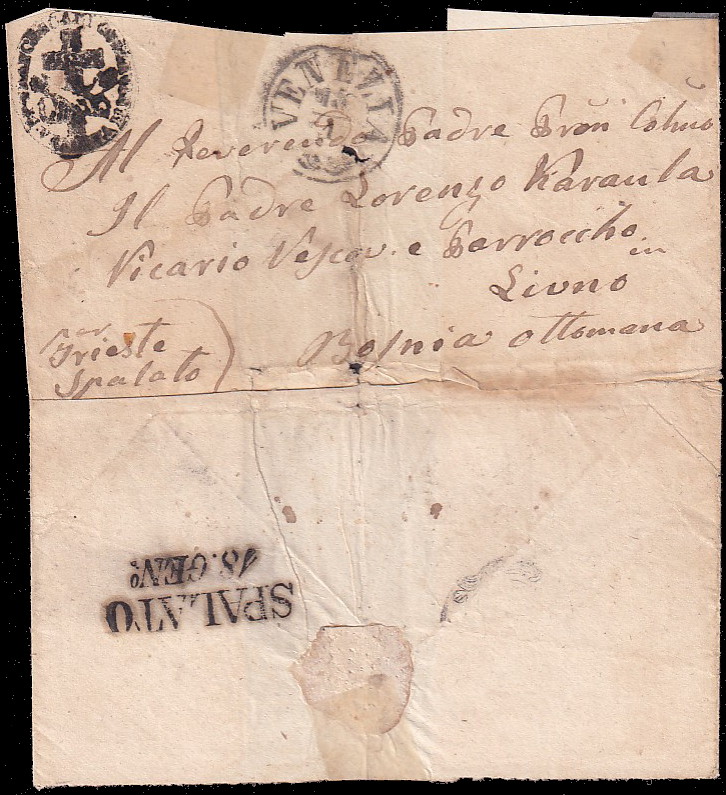 VENEZIA
Al Reverendo Padre Pron Colmo
Il Padre Lorenzo Karaula
Vicario Vescov. e Parroccho
in
Livno
Bosnia ottomana
per
Trieste
Spalato
18. GENº.
SPALATO